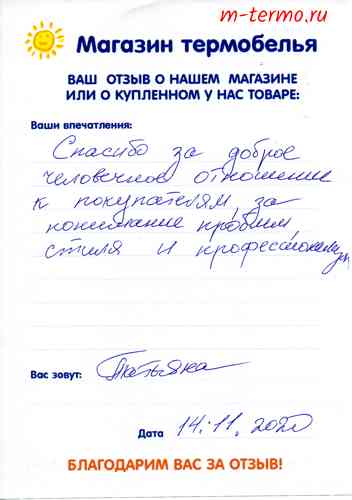 m-termo.ru
Магазин термобелья
ВАШ ОТЗЫВ О НАШЕМ МАГАЗИНЕ
ИЛИ О КУПЛЕННОМ У НАС ТОВАРЕ:
Ваши впечатления:
Спасибо за доброе
человечное отношение
к покупателям, за
понимание проблем,
стиля и профессионализм
Вас зовут: Татьяна
Дата 14.11.2020
БЛАГОДАРИМ ВАС ЗА ОТЗЫВ!